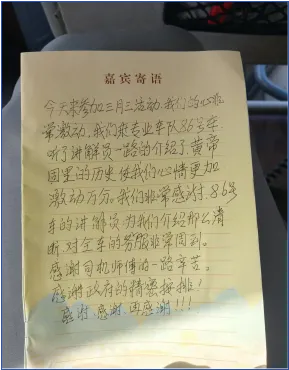 嘉宾寄语
今天来参加三月三活动，我们的心非
常激动，我们乘专业车队86号车
听了讲解员一路的介绍了黄帝
国里的历史使我们心情更加
激动万分。我们非常感谢.86号
车的讲解员为我们介绍那么清
晰.对全车的务服非常周到。
感谢司机师傅的一路辛苦。
感谢政府的精心按排！
感谢.感谢.再感谢！！！